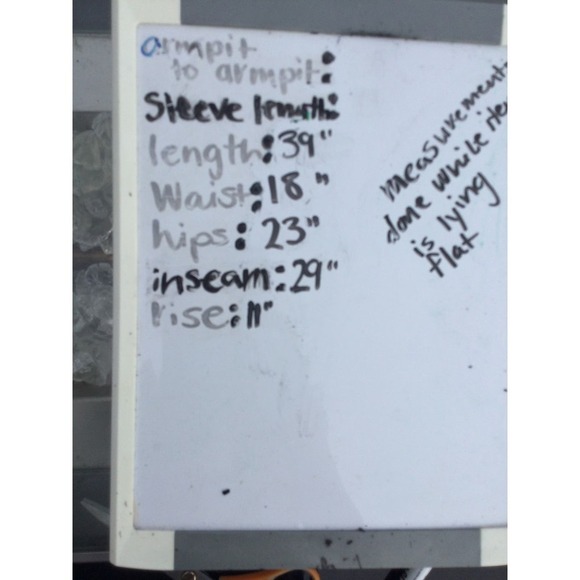 armpit
to armpit:
Sleeve length:
length: 39"
Waist: 18"
hips: 23"
inseam: 29"
rise: 11"
measurement
done while
is lying
flat